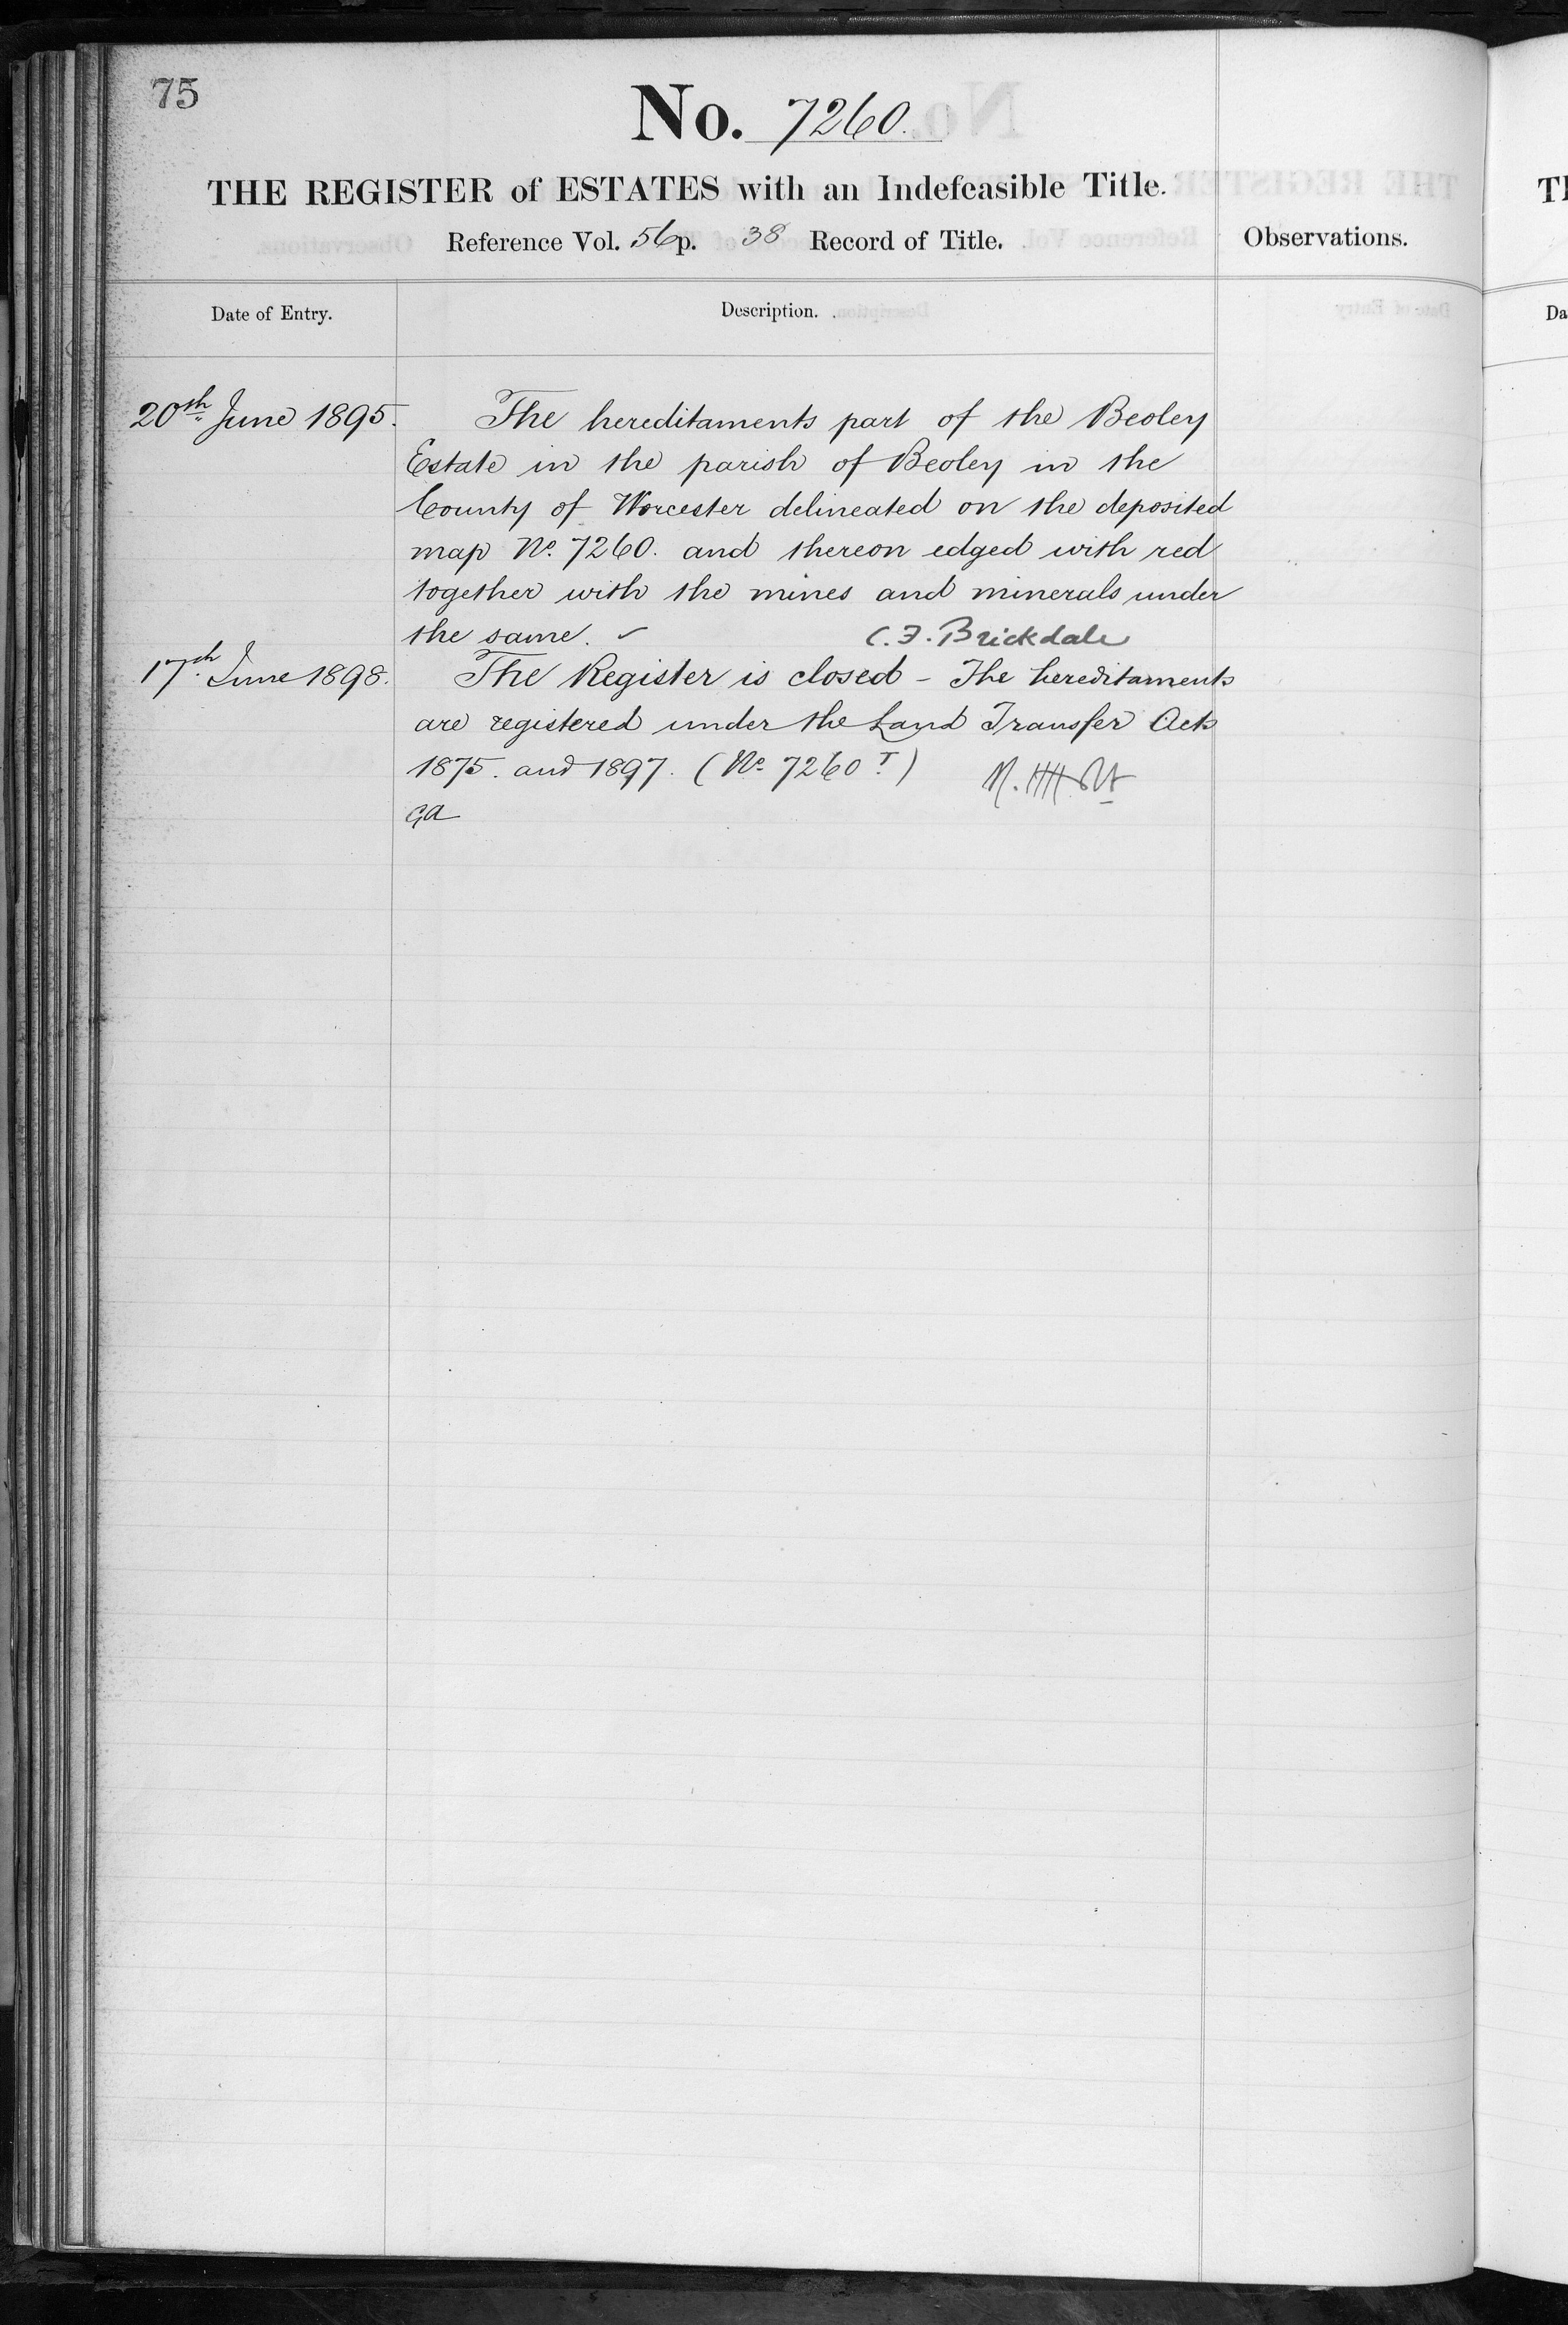 75
No. 7260.
THE REGISTER of ESTATES with an Indefeasible Title.
Reference Vol. 56 p. 38 Record of Title.
Observations.
Date of Entry.
Description.
20th June 1895.
The hereditaments part of the Beoley
Estate in the parish of Beoley in the
County of Worcester delineated on the deposited
map No. 7260. and thereon edged with red
together with the mines and minerals under
the same. ✓ C. F. Brickdale
17th June 1898.
The Register is closed – The hereditaments
are registered under the Land Transfer Acts
1875. and 1897. (No. 7260 T.)
GA
Th
Da